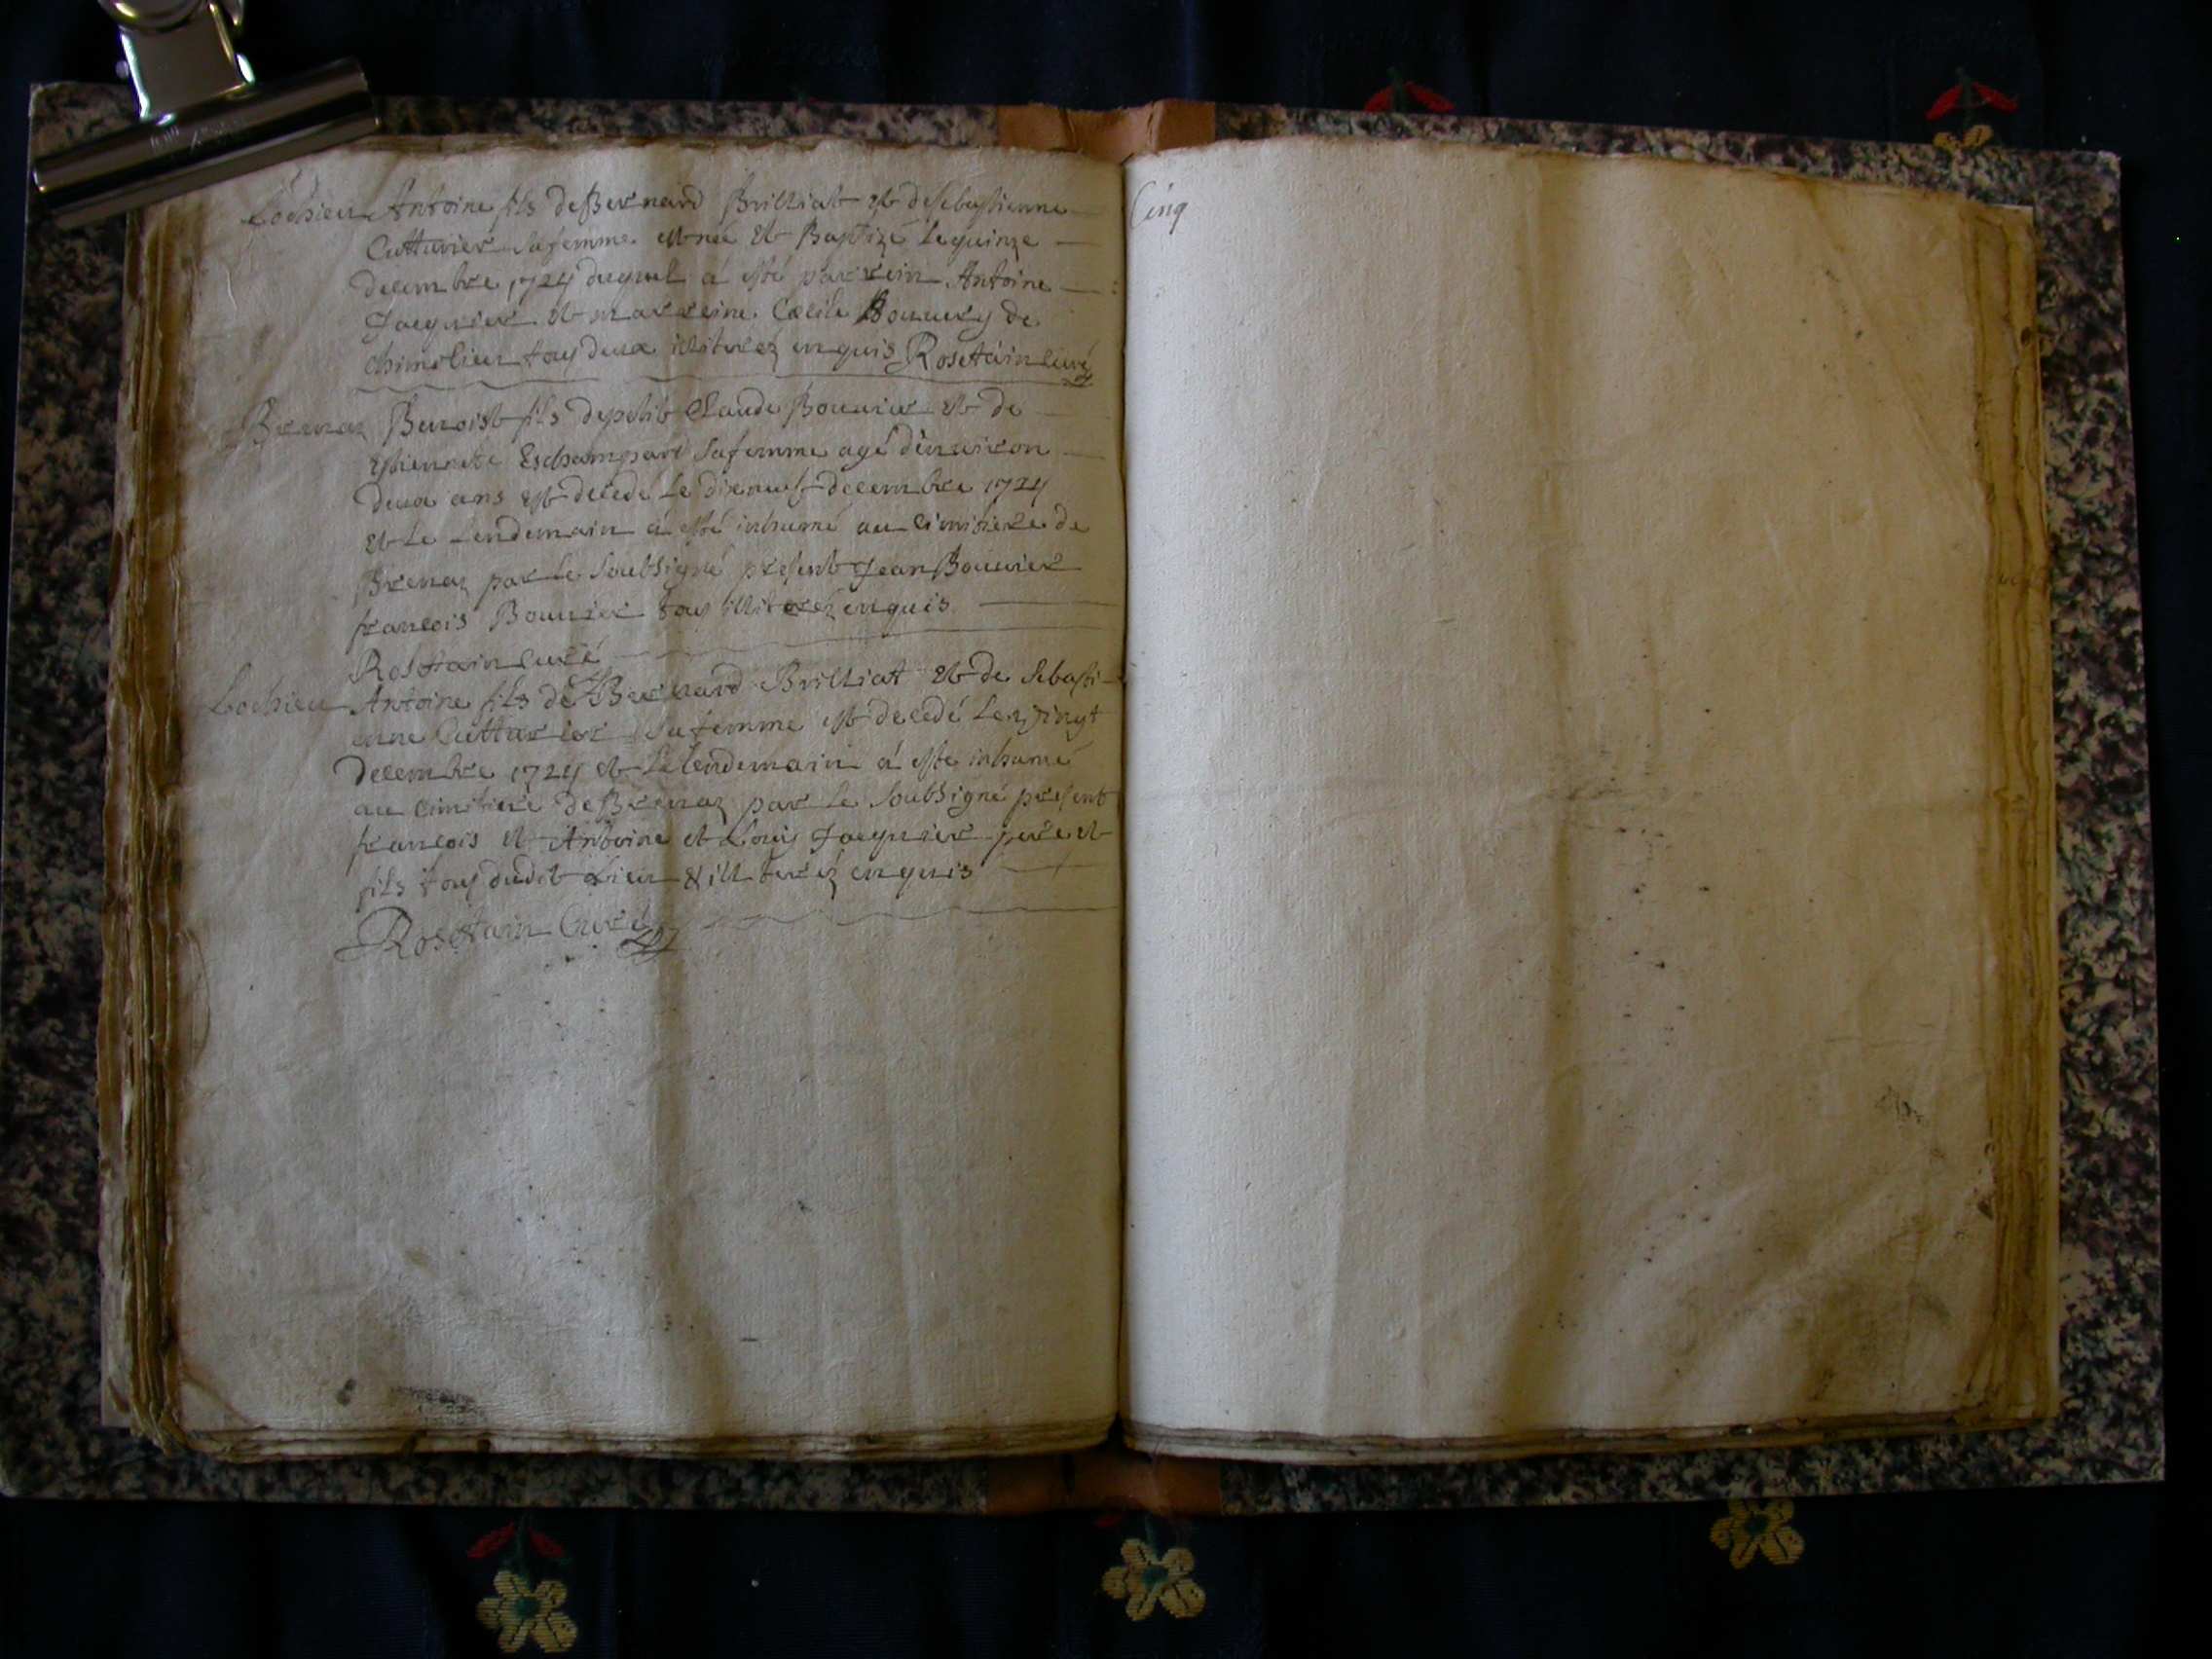 Lochieu Antoine fils de Bernard Brilliat et de Sebastienne
Cuttavier sa femme est né et Baptizé le quinze
decembre 1724 duquel á esté parrein Antoine
Jacquier et marreine Cæcile Bouuery de
chimilieu tous deux illiterez enquis Rosetain curé
Brenaz Benoist fils de petit Claude Bouuier et de
Estiennette Eschampard sa femme agé d'enuiron
deux ans est decedé Le dixneuf decembre 1724
et Le Lendemain á esté inhumé au cimitiere de
Brenaz par Le soubsigné present Jean Bouuier
francois Bouuier tous illiterez enquis
Rosetain curé
Lochieu Antoine fils de Bernard Brilliatt et de Sebasti-
enne Cuttavier sa femme est decedé Le vingt
decembre 1724 et Le lendemain á esté inhumé
au cimitiere de Brenaz par Le soubsigné present
francois et Antoine et Louis Jacquier pere et
fils tous dudit Lieu & illiterez enquis
Rosetain Curé
Cinq